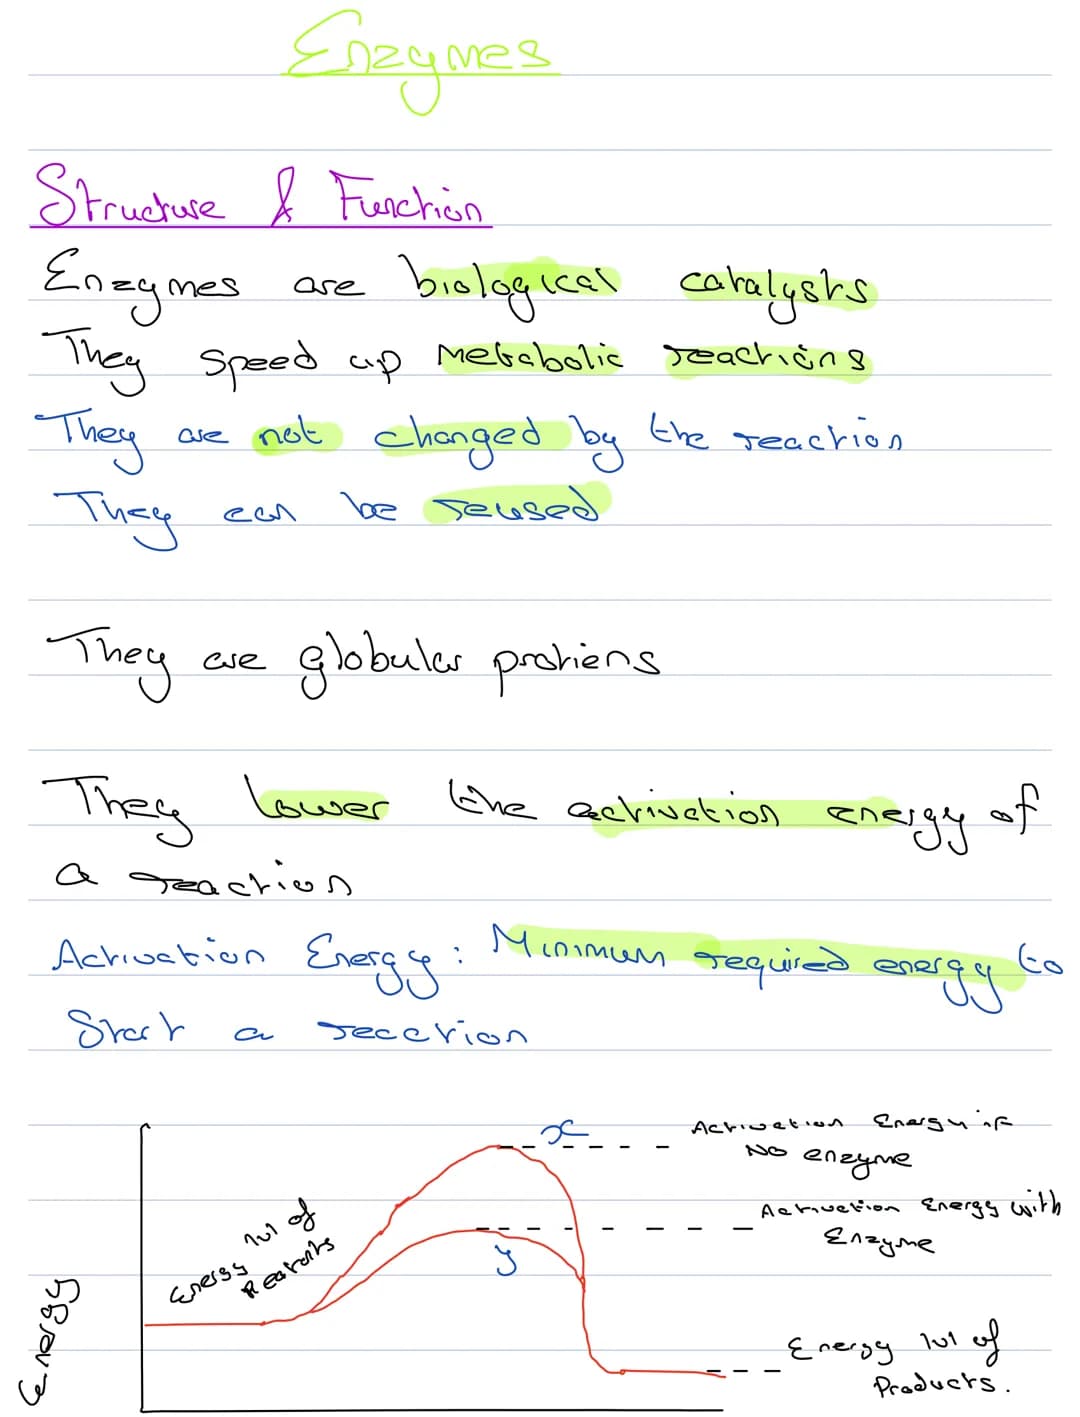 Enzymes
Structure & Function
Enzymes are biological catalysts
They speed up metabolic reactions
They are not changed by the reaction
They can be reused
They are globular protiens
They lower the activation energy of
a reaction
Activation Energy: Minimum required energy to
Start a reaction
x
Activation Energy if
No enzyme
Activation Energy with
Enzyme
y
Energy lvl of
Reatants
Energy
Energy lvl of
Products.